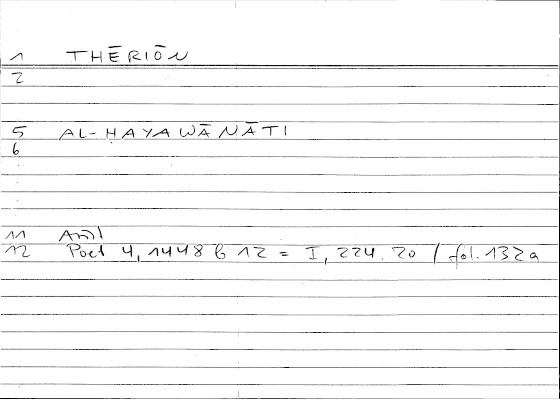 1 THĒRIŌN
2
5 AL-ḤAYAWĀNĀTI
6
11
12 Poet 4, 1448 b 12 = I, 224.20 / fol. 132a